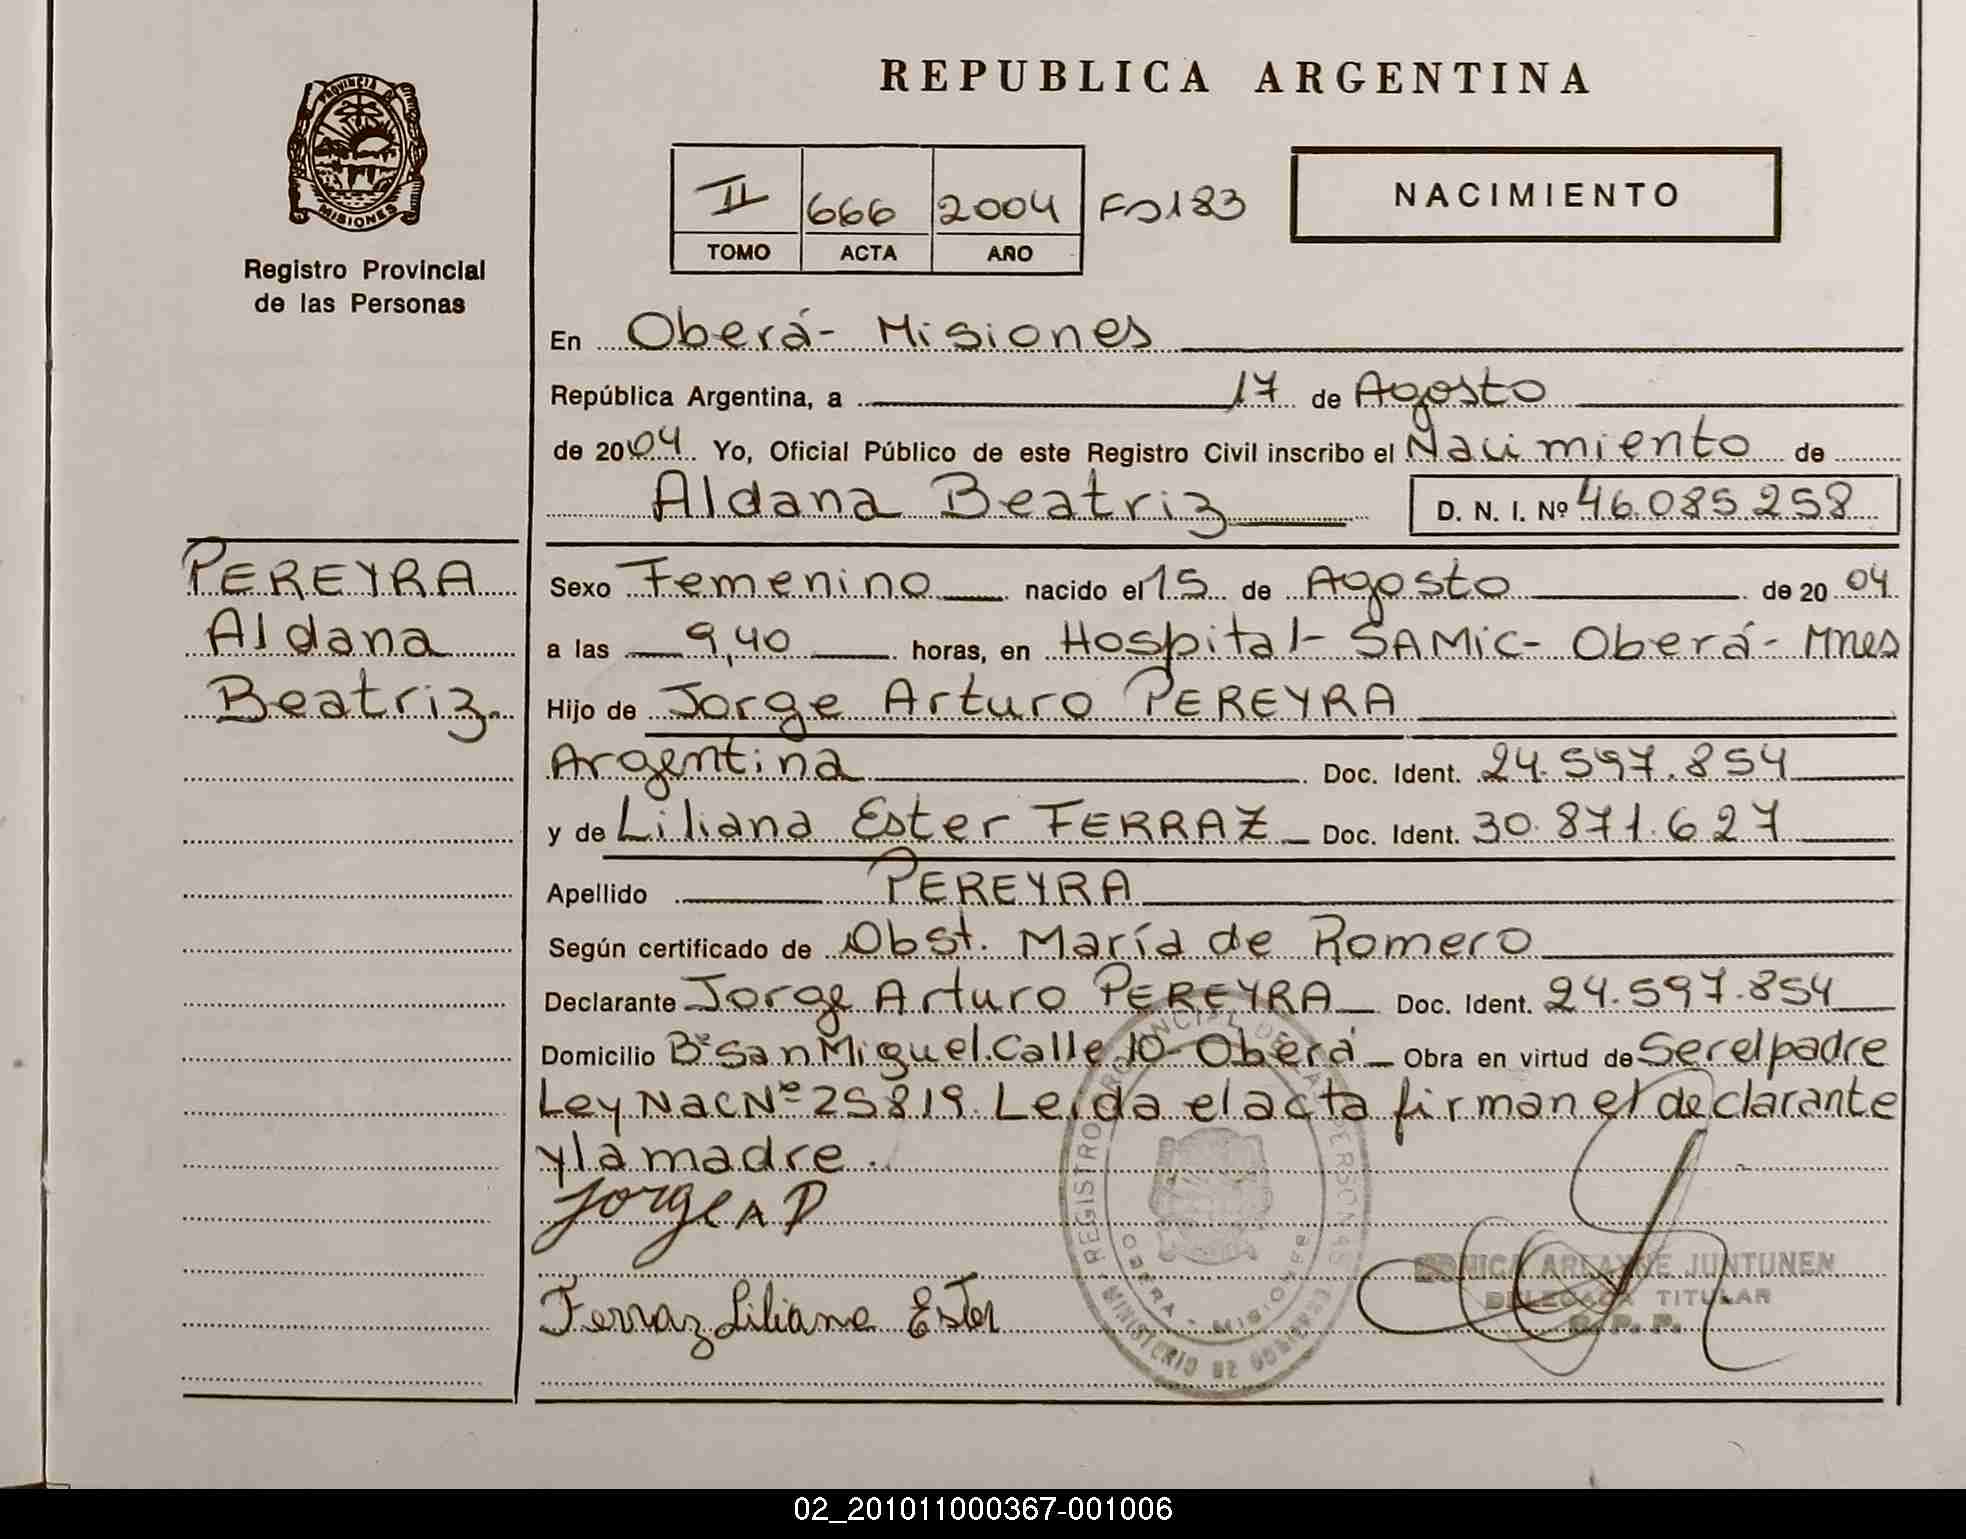 REPUBLICA ARGENTINA
PROVINCIA DE
MISIONES
Registro Provincial
de las Personas
II 666 2004 Fº183
TOMO ACTA AÑO
NACIMIENTO
En Oberá- Misiones
República Argentina, a 17 de Agosto
de 2004 Yo, Oficial Público de este Registro Civil inscribo el Nacimiento de
Aldana Beatriz D. N. I. Nº 46.085.258
PEREYRA
Aldana
Beatriz.
Sexo Femenino nacido el 15 de Agosto de 20 04
a las 9,40 horas, en Hospital- SAMIC- Oberá- Mnes
Hijo de Jorge Arturo PEREYRA
Argentina Doc. Ident. 24.597.854
y de Liliana Ester FERRAZ Doc. Ident. 30.871.627
Apellido PEREYRA
Según certificado de Obst. María de Romero
Declarante Jorge Arturo PEREYRA Doc. Ident. 24.597.854
Domicilio Bº San Miguel. Calle 10- Oberá Obra en virtud de Ser el padre
Ley Nac Nº 25819. Leida el acta firman el declarante
y la madre.
Jorge A P
Ferraz Liliana Ester
REGISTRO PROVINCIAL DE LAS PERSONAS
OBERA - MISIONES
MINISTERIO DE GOBIERNO
ARIANNE JUNTUNEN
DELEGADA TITULAR
R.P.P.
02_201011000367-001006